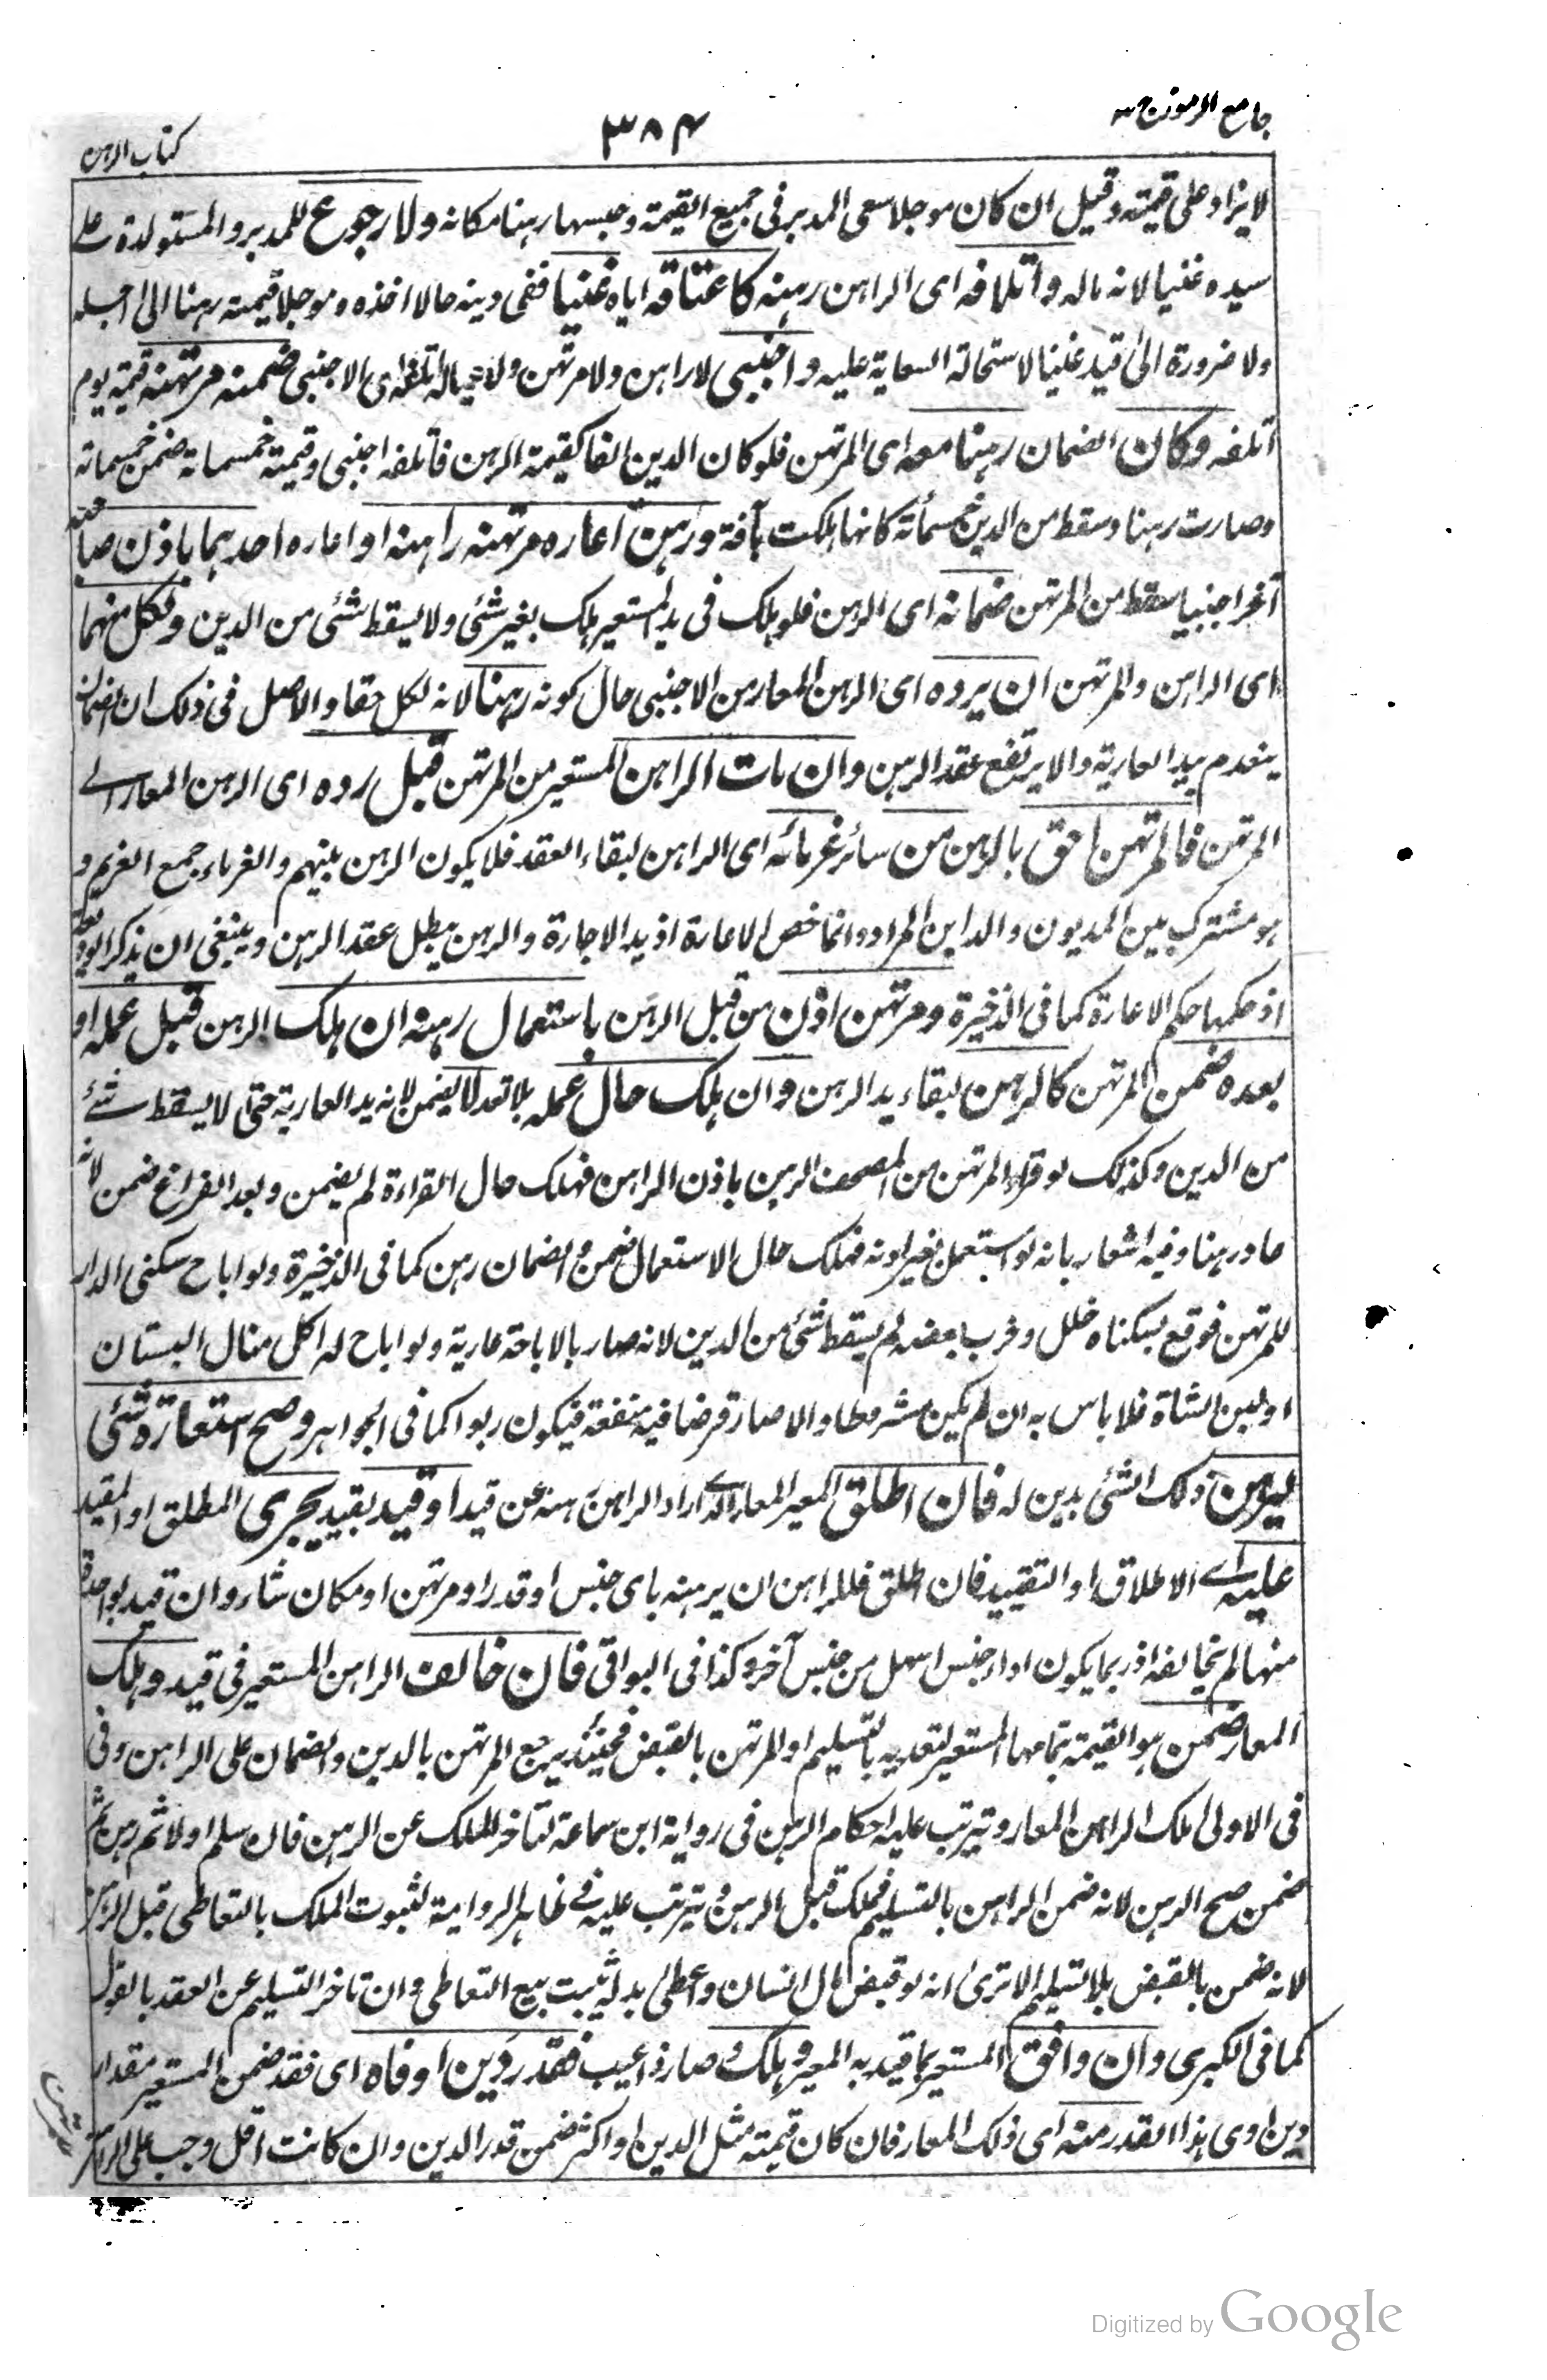 جامع الرموز ج ٣
٣٨٤
كتاب الرهن
لا يزاد على قيمته وقيل ان كان موجلا سعى المدبر فى جميع القيمة وحبسها رهنا مكانه ولا رجوع للمدبر والمستولدة على
سيده غنيا لانه ماله واتلافه اى الراهن رهنه كاعتاقه اياه غنيا ففى دينه حالا اخذه وموجلا قيمته رهنا الى اجله
ولا ضرورة الى قيد غنيا لاستحالة السعاية عليه واجنبى لا راهن ولا مرتهن ولا عياله اتلفه اى الاجنبى ضمنه مرتهنه قيمة يوم
اتلفه وكان الضمان رهنا معه اى المرتهن فلو كان الدين الفا كقيمة الرهن فاتلفه اجنبى وقيمته خمسمائة ضمن خمسمائة
وصارت رهنا وسقط من الدين خمسمائة كانها هلكت بآفة ورهن اعاره مرتهنه راهنه او اعاره احدهما باذن صاحبه
آخر اجنبيا سقط من المرتهن ضمانه اى الرهن فلو هلك فى يد المستعير هلك بغير شئ ولا يسقط شئ من الدين ولكل منهما
اى الراهن والمرتهن ان يرده اى الرهن المعار من الاجنبى حال كونه رهنا لانه لكل حقا والاصل فى ذلك ان الضمان
ينعدم بيد العارية والا يرتفع عقد الرهن وان مات الراهن المستعير من المرتهن قبل رده اى الرهن المعار الى
المرتهن فالمرتهن احق بالرهن من سائر غرمائه اى الراهن لبقاء العقد فلا يكون الرهن بينهم والغرماء جمع الغريم و
هو مشترك بين المديون والداين المراد وانما خص الاعارة اذ يد الاجارة والرهن يبطل عقد الرهن وينبغى ان يذكر الوديعة
اذ حكمها حكم الاعارة كما فى الذخيرة ومرتهن اذن من قبل الراهن باستعمال رهنه ان هلك الرهن قبل عمله او
بعده ضمن المرتهن كالرهن لبقاء يد الرهن وان هلك حال عمله بلا تعد لا يضمن لانه يد العارية حتى لا يسقط شئ
من الدين وكذلك لو قرا المرتهن من المصحف الرهن باذن الراهن فهلك حال القراءة لم يضمن وبعد الفراغ ضمن لانه
عاد رهنا وفيه اشعار بانه لو استعمل بغير اذنه فهلك حال الاستعمال ضمن والضمان رهن كما فى الذخيرة ولو اباح سكنى الدار
للمرتهن فوقع بسكناه خلل وخرب بعضه لم يسقط شئ من الدين لانه صار بالاباحة عارية ولو اباح له اكل منال البستان
او لبن الشاة فلا باس به ان لم يكن مشروطا والا صار قرضا فيه منفعة فيكون ربوا كما فى الجواهر وصح استعارة شئ
ليرهن ذلك الشئ بدين له فان اطلق المعير المعار الذى اراد الراهن رهنه عن قيد او قيد بقيد يجرى المطلق او المقيد
عليه اى الاطلاق او التقييد فان اطلق فللراهن ان يرهنه باى جنس او قدر او مرتهن او مكان شاء وان قيد بواحد
منها لم يخالفه اذ ربما يكون اداء جنس اسهل من جنس آخر وكذا فى البواقى فان خالف الراهن المستعير فى قيد وهلك
المعار ضمن هو القيمة بتمامها المستعير لتعديه بالتسليم او المرتهن بالقبض فحينئذ يرجع المرتهن بالدين والضمان على الراهن وفى
فى الاولى ملك الراهن المعار ويترتب عليه احكام الرهن فى رواية ابن سماعة لتاخر الملك عن الرهن فان سلم اولا ثم رهن ثم
ضمن صح الرهن لانه ضمن الراهن بالتسليم فملك قبل الرهن ويترتب عليه فى ظاهر الرواية لثبوت الملك بالتعاطى قبل الرهن
لانه ضمن بالقبض بلا تسليم الا ترى انه لو قبض مال انسان واعطى بدله يثبت بيع التعاطى وان تاخر التسليم عن العقد بالقول
كما فى الكبرى وان وافق المستعير بما قيد به المعير وهلك او صار ذا عيب فقدر دين اوفاه اى فقد ضمن المستعير مقدار
دين اوفى هذا القدر منه اى ذلك المعار فان كان قيمته مثل الدين او اكثر ضمن قدر الدين وان كانت اقل وجب على الراهن
Digitized by Google